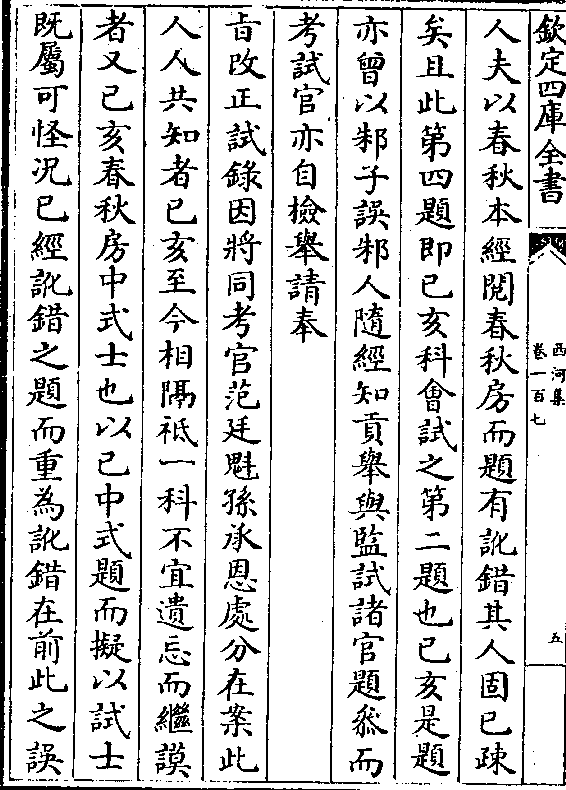 欽定四庫全書
西河集
卷一百七
五
人夫以春秋本經閱春秋房而題有訛錯其人固已疎
矣且此第四題即已亥科會試之第二題也已亥是題
亦曾以邾子誤邾人隨經知貢舉與監試諸官題叅而
考試官亦自檢舉請奉
旨改正試錄因將同考官范廷魁孫承恩處分在案此
人人共知者已亥至今相隔祗一科不宜遺忘而繼謨
者又已亥春秋房中式士也以已中式題而擬以試士
既屬可怪况已經訛錯之題而重為訛錯在前此之誤